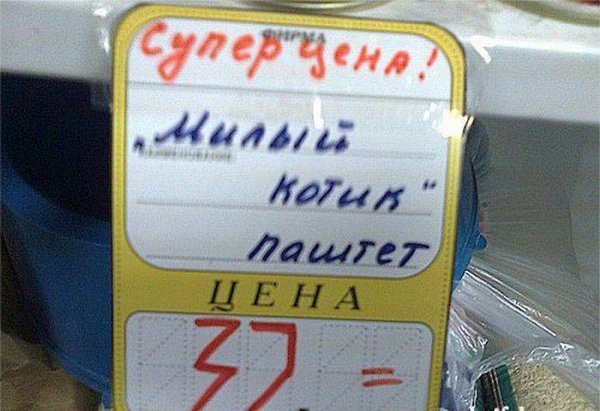 ФИРМА
Супер цена!
„Милый
НАИМЕНОВАНИЕ
котик"
паштет
ЦЕНА
37. =